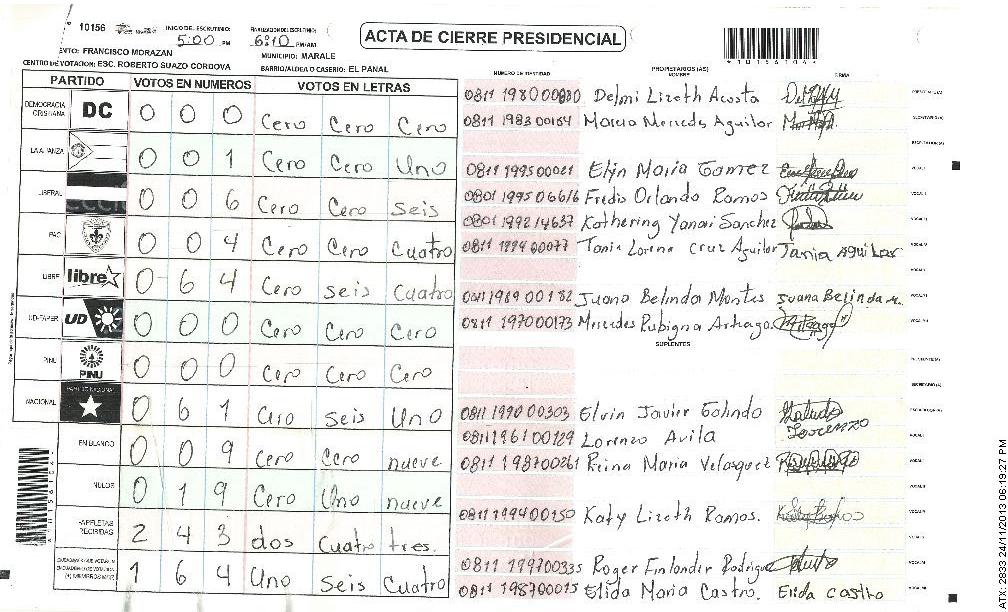 10156 INICIO DE ESCRUTINIO: 5:00 PM FINALIZACION DEL ESCRUTINIO: 6:10 PM/AM
ACTA DE CIERRE PRESIDENCIAL
FRANCISCO MORAZAN
MUNICIPIO: MARALE
CENTRO DE VOTACION: ESC. ROBERTO SUAZO CORDOVA BARRIO/ALDEA O CASERIO: EL PANAL
*10156104*
PARTIDO VOTOS EN NUMEROS VOTOS EN LETRAS
DEMOCRACIA CRISTIANA DC 0 0 0 Cero Cero Cero
LA ALIANZA 0 0 1 Cero Cero Uno
LIBERAL 0 0 6 Cero Cero seis
PAC 0 0 4 Cero Cero Cuatro
LIBRE libre 0 6 4 Cero seis cuatro
UD-FAPER UD 0 0 0 Cero Cero Cero
PINU PINU 0 0 0 Cero Cero Cero
NACIONAL PARTIDO NACIONAL 0 6 1 Cero seis Uno
EN BLANCO 0 0 9 Cero Cero nueve
NULOS 0 1 9 Cero Uno nueve
PAPELETAS RECIBIDAS 2 4 3 dos Cuatro tres.
1 6 4 Uno seis Cuatro
NUMERO DE IDENTIDAD PROPIETARIOS (AS) NOMBRE FIRMA
Delmi Lizeth Acosta
0811 1983 00164 Aguilor
0811 1995 00021 Elyn Maria Gomez
0801 1995 06616 Fredis Orlando Ramos
0801 1992 14637 Kathering Yanari Sanchez
Tania Lorena Cruz Aguilar Tania Aguilar
0811 1969 00182 Juana Belinda Montes Juana Belinda M.
0811 1970 00173
SUPLENTES
0811 1990 00303 Elvin Javier Galindo Galindo
0811 1961 00129 Lorenzo Avila Lorenzo
0811 1987 00261 Reina Maria Velasquez
0811 1994 00150 Katy Lizeth Ramos.
0811 1997 00335 Roger Finlander
0811 1987 00015 Elida Maria Castro. Elida castro
ATX 2933 24/11/2013 06:19:27 PM